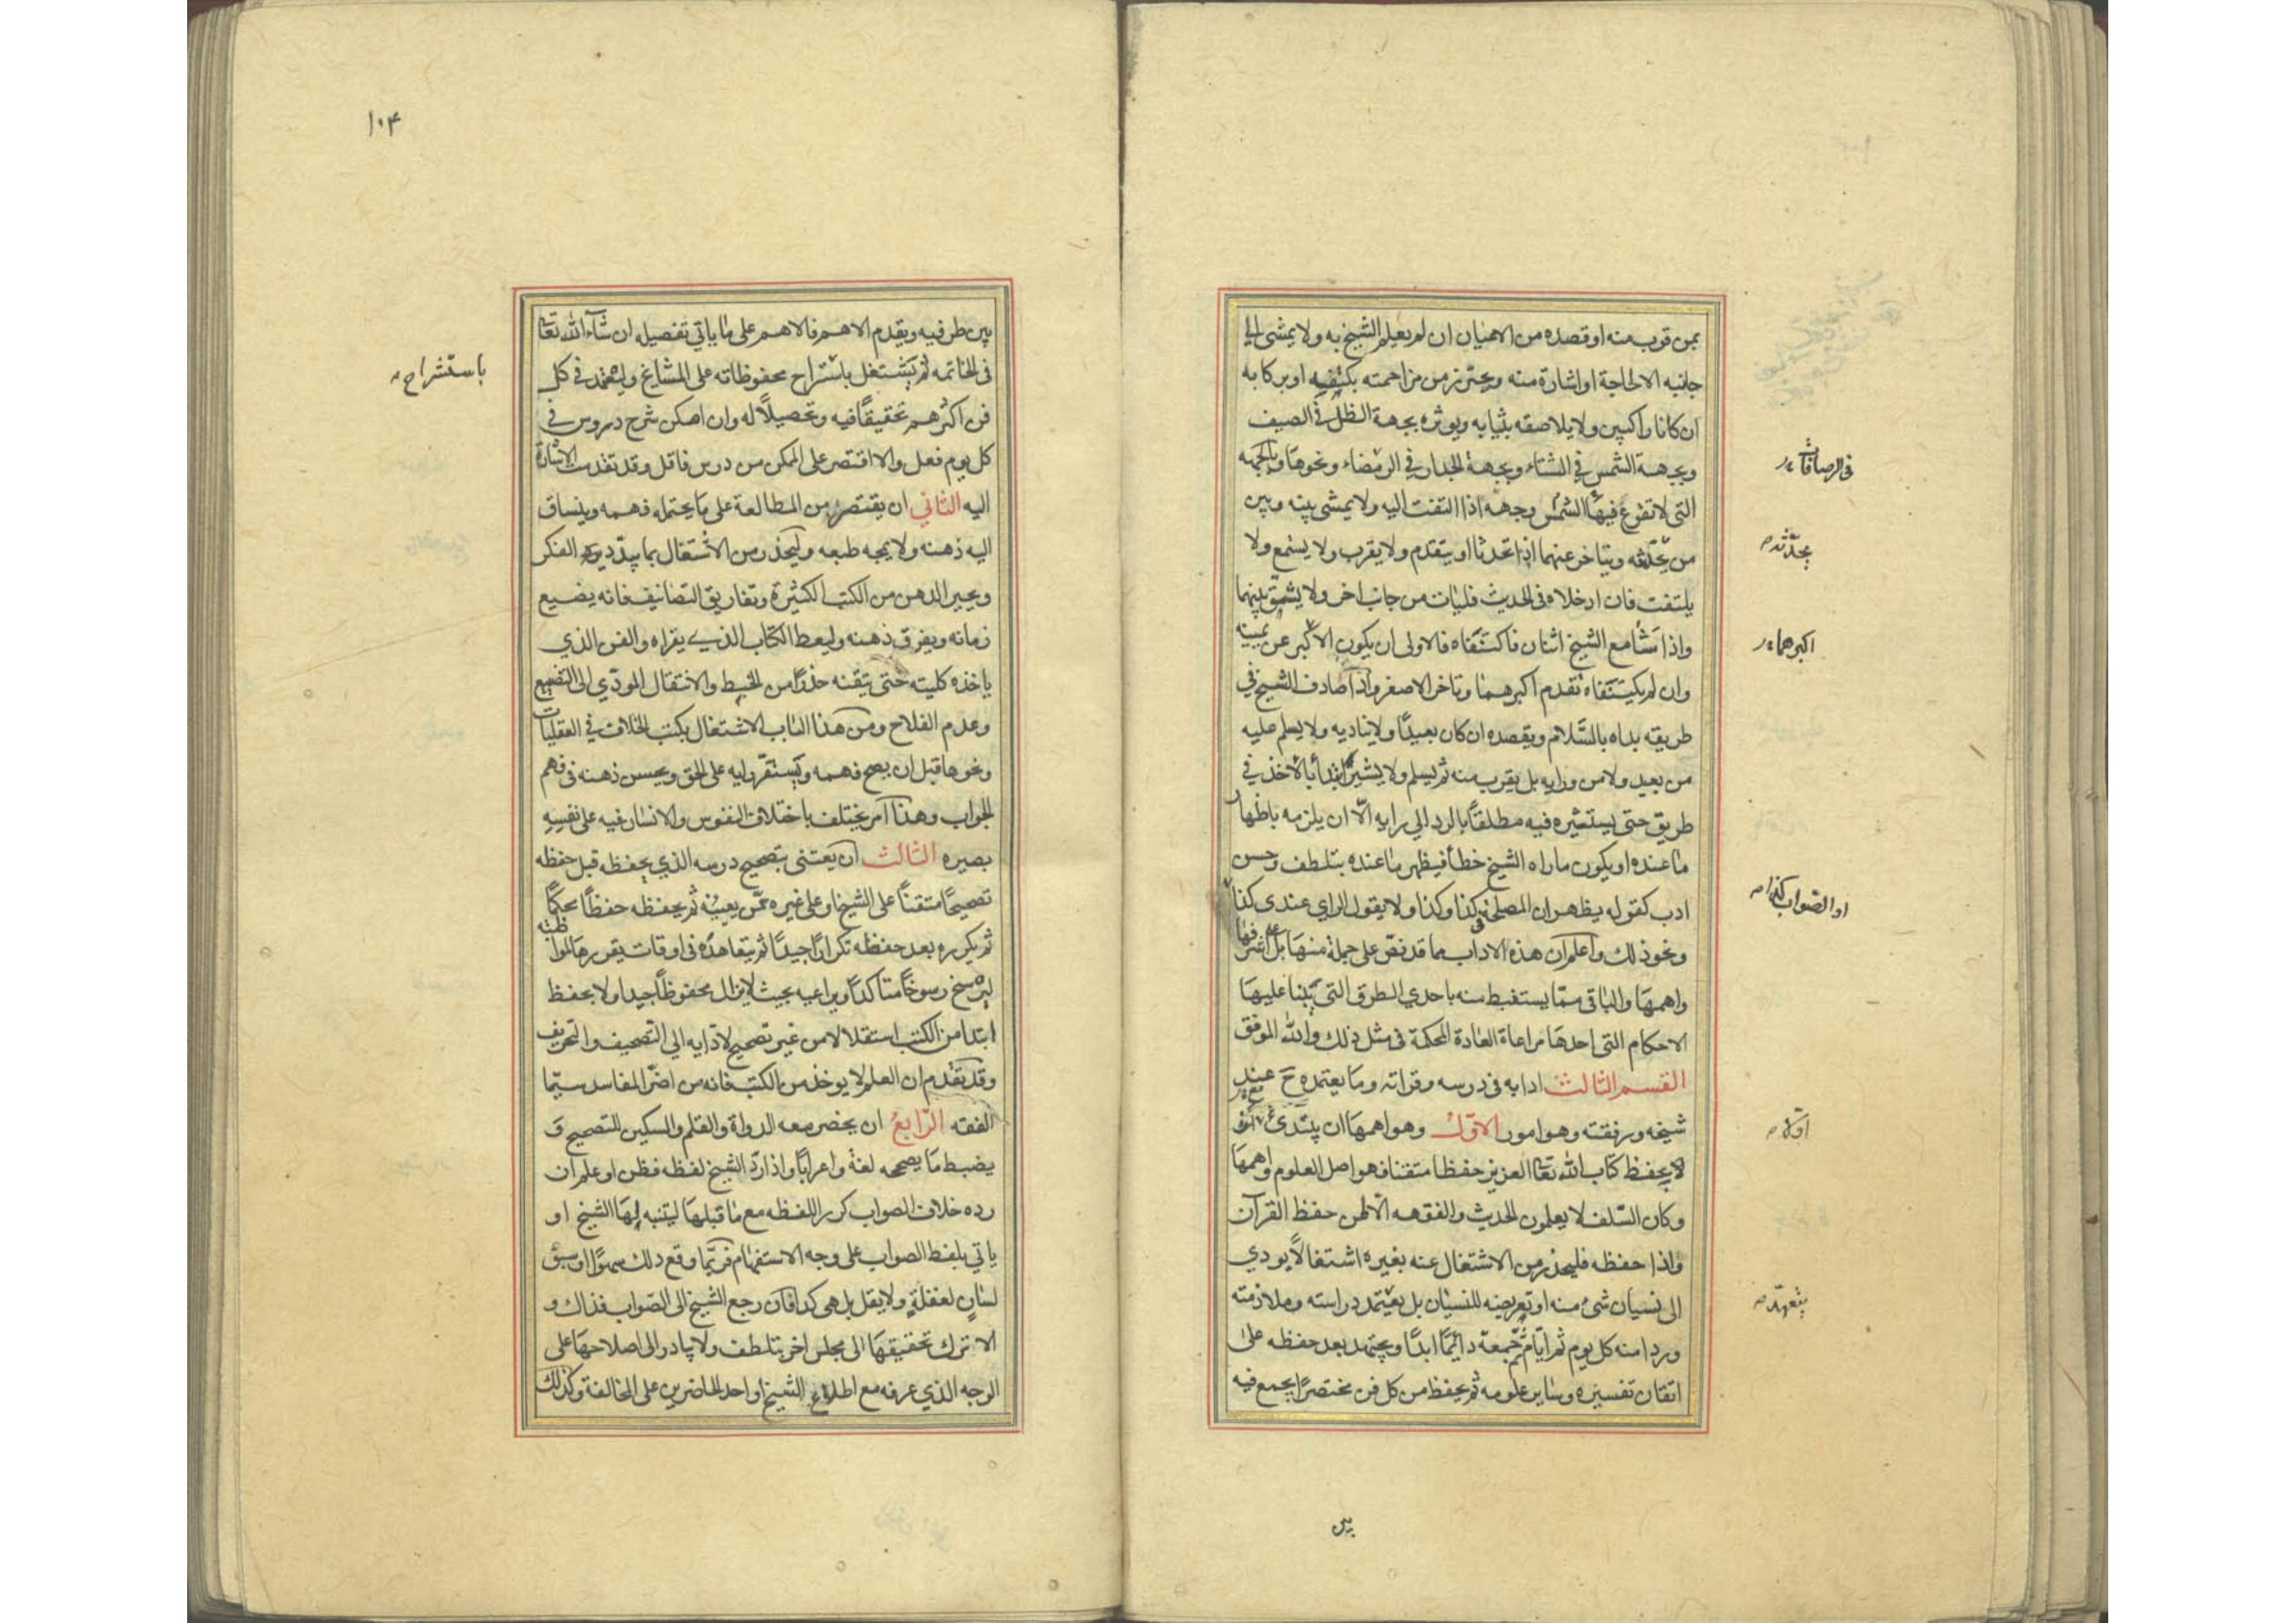 بمن قرب منه او قصده من الاعيان ان لم يعلم الشيخ به ولا يمشي الى
جانبه الا لحاجة او اشارة منه ويحترز من مزاحمته بكتفه او بركابه
ان كانا راكبين ولا يلاصقه بثيابه ويوثره بجهة الظل في الصيف
وبجهة الشمس في الشتاء وبجهة الجدار في الرمضاء ونحوها وبالجهة
في الرصافات
التي لا تقرع فيها الشمس وجهه اذا التفت اليه ولا يمشي بينه وبين
من يحدثه ويتاخر عنهما اذا تحدثا او يتقدم ولا يقرب ولا يستمع ولا
يحدّثه
يلتفت فان ادخلاه في الحديث فليات من جانب اخر ولا يشق بينهما
واذا مشا مع الشيخ اثنان فاكتنفاه فالاولى ان يكون الاكبر عن يمينه
اكبرهما
وان لم يكتنفاه تقدم اكبرهما وتاخر الاصغر واذا صادف الشيخ في
طريقه بداه بالسّلام ويقصده ان كان بعيدًا ولا يناديه ولا يسلم عليه
من بعيد ولا من ورايه بل يقرب منه ثم يسلم ولا يشير ابتدأ بالاخذ في
طريق حتى يستشيره فيه مطلقاً بالرد الى رايه الّا ان يلزمه باظهار
ما عنده او يكون ماراه الشيخ خطأ فيظهر ما عنده بتلطف وحسن
ادب كقوله يظهر ان المصلحة في كذا وكذا ولا يقول الراي عندى كذا
او الصّواب كذا
ونحو ذلك واعلم ان هذه الاداب مما قد نصّ على جملة منها بل اشرفها
واهمها والباقى ممّا يستنبط منه باحدي الطرق التي يبنا عليها
الاحكام التى احدها مراعاة العادة المحكمة فى مثل ذلك والله الموفق
القسم الثالث ادابه فى درسه وقراته وما يعتمده ح عند
شيخه ورفقته وهو امور الاوّل وهو اهمها ان يبتدئ
اوّلا
بحفظ كتاب الله تعالى العزيز حفظا متقنا فهو اصل العلوم واهمها
وكان السّلف لا يعلمون الحديث والفقه الا لمن حفظ القرآن
واذا حفظه فليحذر من الاشتغال عنه بغيره اشتغالًا يودي
الى نسيان شئ منه او تعريضه للنسيان بل يعتمد دراسته وملازمته
يتعهّد
وردا منه كل يوم ثم ايّام ثم جمعة دائمًا ابدًا ويجتهد بعد حفظه على
اتقان تفسيره وساير علومه ثم يحفظ من كل فن مختصرًا يجمع فيه
بين
١٠٤
بين طرفيه ويقدم الاهم فالاهم على ما ياتي تفصيله ان شآء الله تعالى
فى الخاتمه ثم يشتغل باستشراح محفوظاته على المشايخ وليعتمد في كل
باستشراح
فن اكثرهم تحقيقًا فيه وتحصيلًا له وان امكن شرح دروس في
كل يوم فعل والا اقتصر على الممكن من درس فاقل وقد تقدمت الاشارة
اليه الثاني ان يقتصر من المطالعة على ما يحتمله فهمه وينساق
اليه ذهنه ولا يمجه طبعه وليحذر من الاشتغال بما يبدّد الفكر
ويحير الذهن من الكتب الكثيرة وتفاريق التصانيف فانه يضيع
زمانه ويفرق ذهنه وليعط الكتاب الذي يقراه والفن الذي
ياخذه كليته حتى يتقنه حذرًا من الخبط والانتقال المودّي الى التضييع
وعدم الفلاح ومن هذا الباب الاشتغال بكتب الخلاف في العقليات
ونحوها قبل ان يصح فهمه ويستقر رايه على الحق ويحسن ذهنه فى فهم
الجواب وهذا امر يختلف باختلاف النفوس والانسان فيه على نفسه
بصيره الثالث ان يعتنى بتصحيح درسه الذي يحفظه قبل حفظه
تصحيحًا متقنًا على الشيخ او على غيره ممّن يعينه ثم يحفظه حفظًا محكمًا
ثم يكرره بعد حفظه تكرارًا جيدًا ثم يتعاهده فى اوقات يقررها لمواظبته
ليرسخ رسوخًا متاكدًا ويراعيه بحيث لا يزال محفوظًا جيدا ولا يحفظ
ابتدا من الكتب استقلالا من غير تصحيح لادّايه الى التصحيف والتحريف
وقد تقدم ان العلم لا يوخذ من الكتب فانه من اضرّ المفاسد سيّما
الفقه الرّابع ان يحضر معه الدواة والقلم والسكين للتصحيح و
يضبط ما يصححه لغة واعرابًا واذا ردّ الشيخ لفظه فظن او علم ان
رده خلاف الصواب كرر اللفظه مع ما قبلها ليتنبه لها الشيخ او
ياتي بلفظ الصواب على وجه الاستفهام فربّما وقع ذلك سهوًا او سبق
لسان لغفلةٍ ولا يقل بل هى كذا فان رجع الشيخ الى الصّواب فذاك و
الا ترك تحقيقها الى مجلس اخر بتلطف ولا يبادر الى اصلاحها على
الوجه الذي عرفه مع اطلاع الشيخ او احد الحاضرين على المخالفة وكذلك